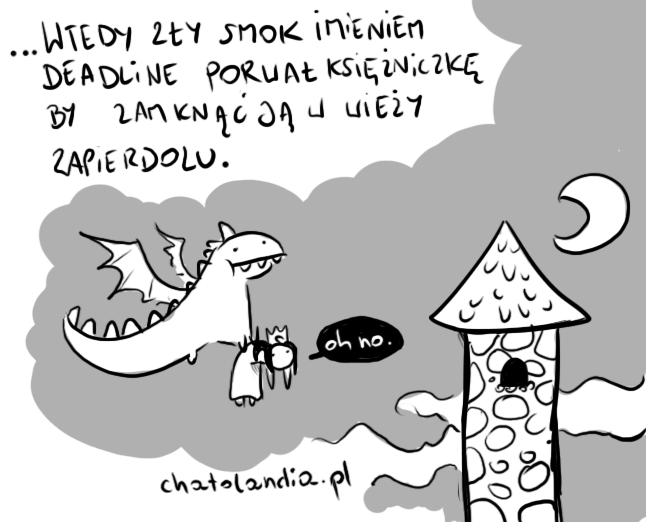 ...WTEDY ZŁY SMOK IMIENIEM
DEADLINE PORWAŁ KSIĘŻNICZKĘ
BY ZAMKNĄĆ JĄ W WIEŻY
ZAPIERDOLU.
oh no.
chatolandia.pl